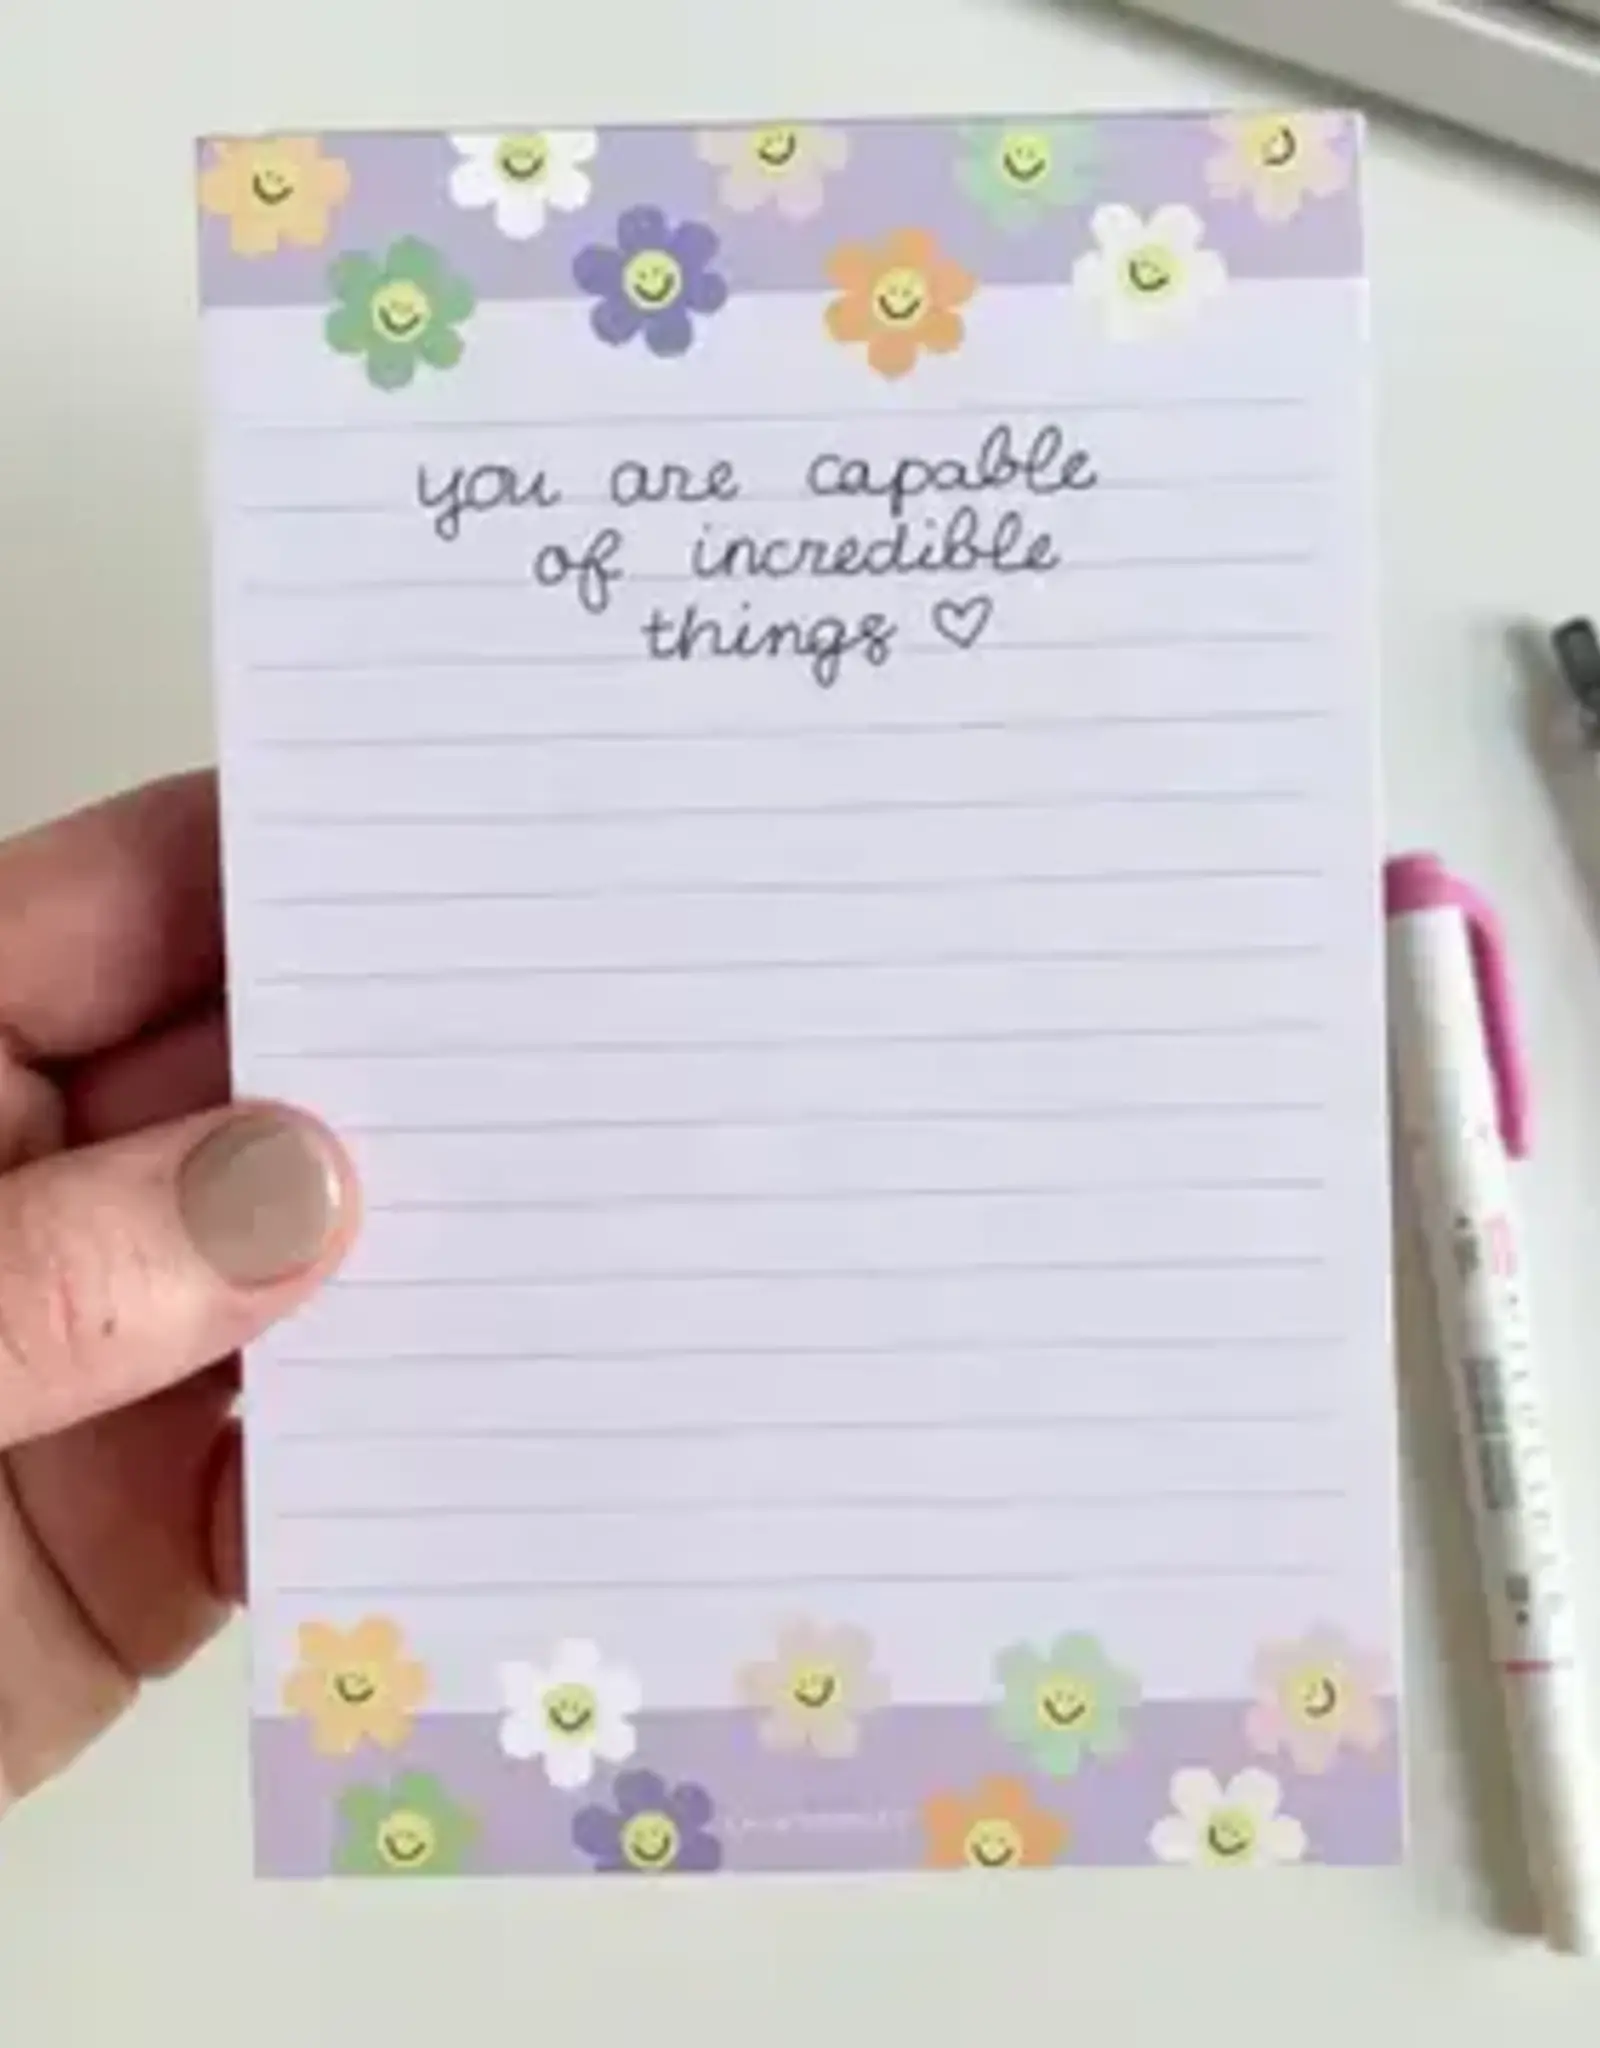 you are capable
of incredible
things ♡